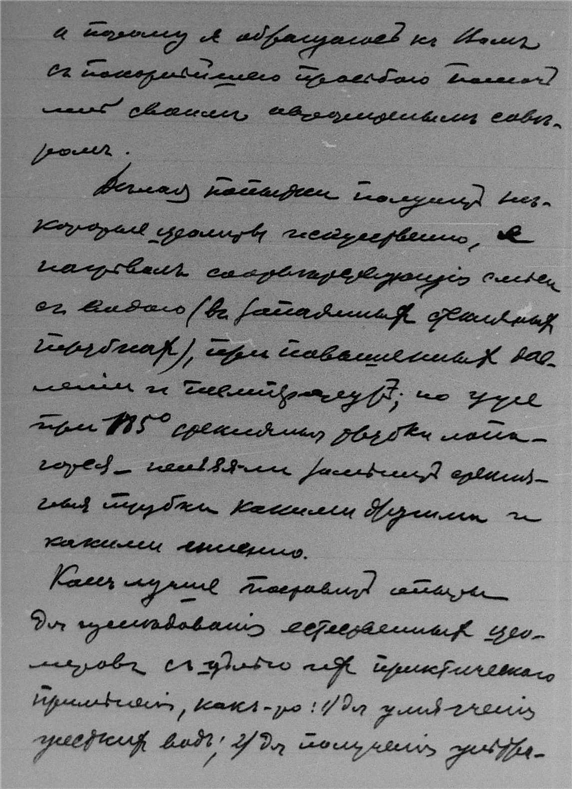 а потому я обращаюсь къ Вамъ
съ покорнѣйшею просьбою помочь
мнѣ своимъ авторитетнымъ совѣ-
томъ.
Дѣлая попытки получить нѣ-
которые цеолиты искусственно, я
нагрѣвалъ соотвѣтствующія смѣси
съ водою (въ запаянныхъ стеклянныхъ
трубкахъ), при повышенныхъ дав-
леніи и температурѣ; но уже
при 185° стеклянныя трубки лопа-
ются – нельзя ли замѣнить стеклян-
ныя трубки какими другими и
какими именно.
Какъ лучше поставить опыты
для изслѣдованія естественныхъ цео-
литовъ съ цѣлью ихъ практическаго
примѣненія, какъ-то: 1) для умягченія
жесткихъ водъ; 2) для полученія